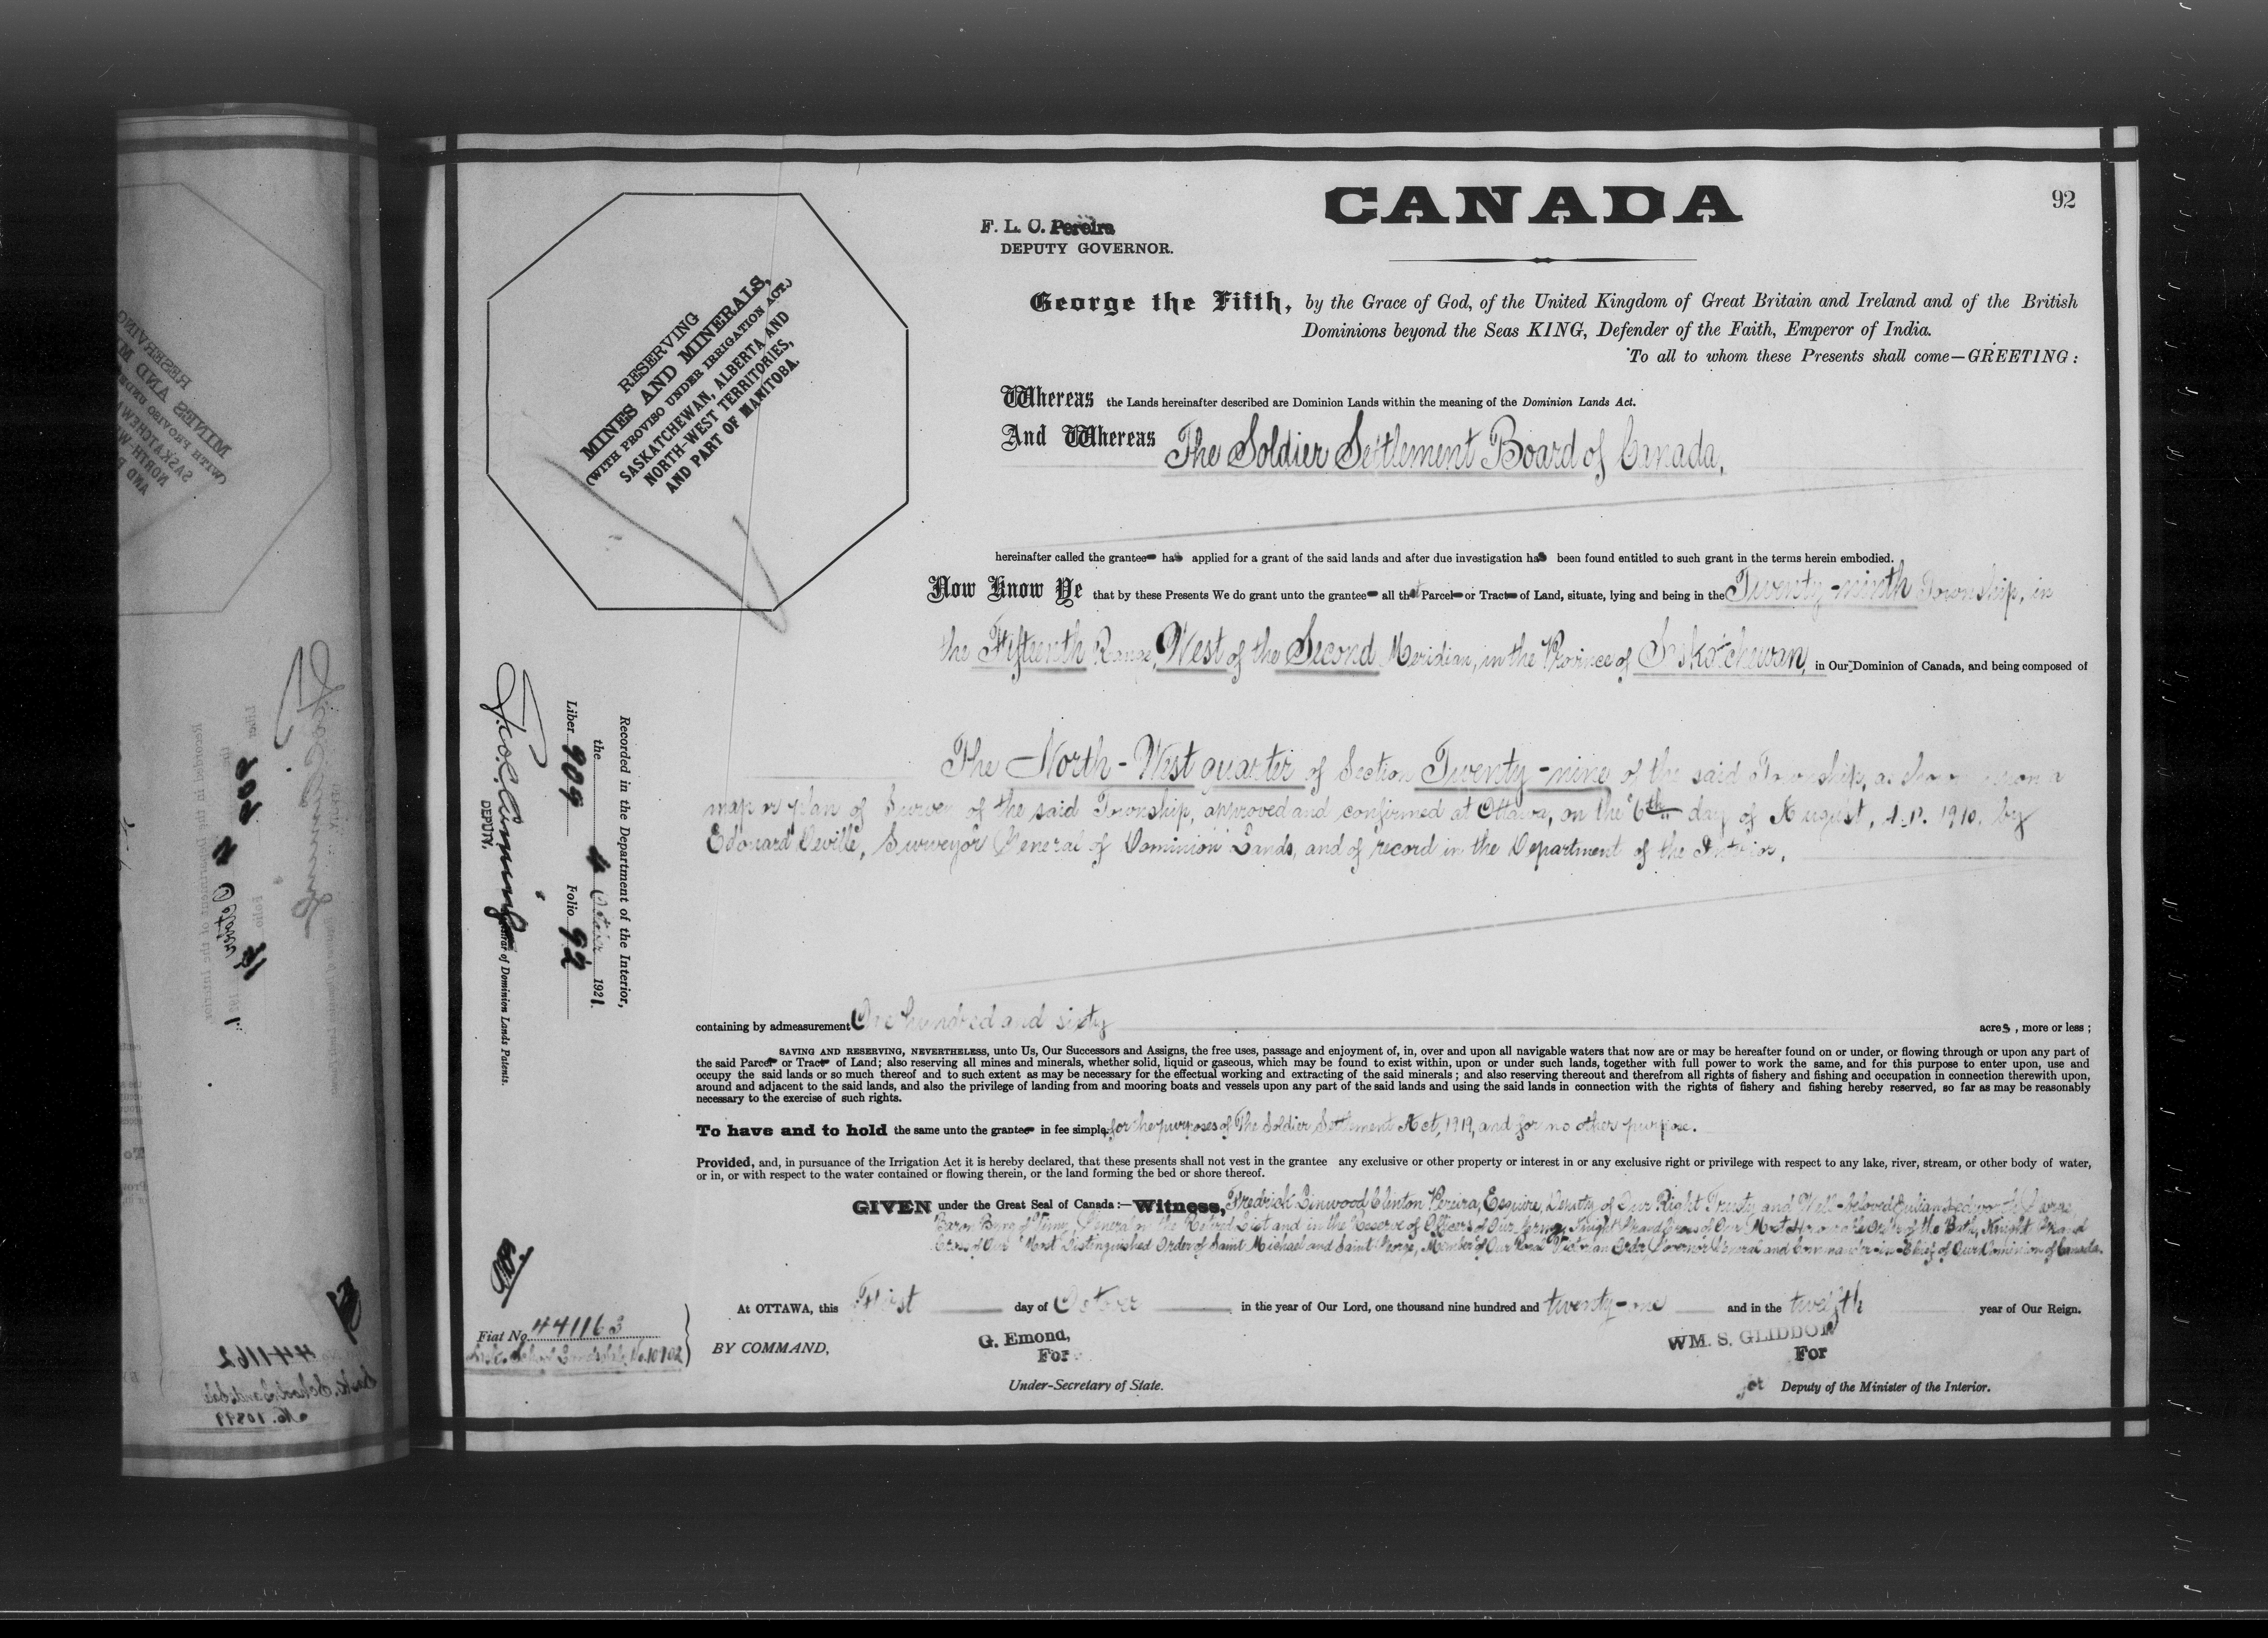 CANADA
92
F. L. C. Pereira
DEPUTY GOVERNOR.
RESERVING
MINES AND MINERALS,
(WITH PROVISO UNDER IRRIGATION ACT.)
SASKATCHEWAN, ALBERTA AND
NORTH-WEST TERRITORIES,
AND PART OF MANITOBA.
George the Fifth, by the Grace of God, of the United Kingdom of Great Britain and Ireland and of the British
Dominions beyond the Seas KING, Defender of the Faith, Emperor of India.
To all to whom these Presents shall come—GREETING:
Whereas the Lands hereinafter described are Dominion Lands within the meaning of the Dominion Lands Act.
And Whereas The Soldier Settlement Board of Canada,
hereinafter called the grantee has applied for a grant of the said lands and after due investigation has been found entitled to such grant in the terms herein embodied.
Now Know Ye that by these Presents We do grant unto the grantee all that Parcel or Tract of Land, situate, lying and being in the Twenty-ninth Township, in
the Fifteenth Range, West of the Second Meridian, in the Province of Saskatchewan, in Our Dominion of Canada, and being composed of
The North-West quarter of Section Twenty-nine of the said Township, as shown upon a
map or plan of Survey of the said Township, approved and confirmed at Ottawa, on the 6th day of August, A.D. 1910, by
Edouard Deville, Surveyor General of Dominion Lands, and of record in the Department of the Interior.
Recorded in the Department of the Interior,
the 4 October 1921.
Liber 909 Folio 92
DEPUTY.
Registrar of Dominion Lands Patents.
containing by admeasurement One hundred and sixty acres, more or less;
SAVING AND RESERVING, NEVERTHELESS, unto Us, Our Successors and Assigns, the free uses, passage and enjoyment of, in, over and upon all navigable waters that now are or may be hereafter found on or under, or flowing through or upon any part of
the said Parcel or Tract of Land; also reserving all mines and minerals, whether solid, liquid or gaseous, which may be found to exist within, upon or under such lands, together with full power to work the same, and for this purpose to enter upon, use and
occupy the said lands or so much thereof and to such extent as may be necessary for the effectual working and extracting of the said minerals; and also reserving thereout and therefrom all rights of fishery and fishing and occupation in connection therewith upon,
around and adjacent to the said lands, and also the privilege of landing from and mooring boats and vessels upon any part of the said lands and using the said lands in connection with the rights of fishery and fishing hereby reserved, so far as may be reasonably
necessary to the exercise of such rights.
To have and to hold the same unto the grantee in fee simple, for the purposes of The Soldier Settlement Act, 1919, and for no other purpose.
Provided, and, in pursuance of the Irrigation Act it is hereby declared, that these presents shall not vest in the grantee any exclusive or other property or interest in or any exclusive right or privilege with respect to any lake, river, stream, or other body of water,
or in, or with respect to the water contained or flowing therein, or the land forming the bed or shore thereof.
GIVEN under the Great Seal of Canada:—Witness, Fredrick Linwood Clinton Pereira, Esquire, Deputy of Our Right Trusty and Well-beloved Julian Hedworth George
Baron Byng of Vimy, General on the Retired List and in the Reserve of Officers of Our Army, Knight Grand Cross of Our Most Honourable Order of the Bath, Knight Grand
Cross of Our Most Distinguished Order of Saint Michael and Saint George, Member of Our Royal Victorian Order, Governor General and Commander-in-Chief of Our Dominion of Canada.
At OTTAWA, this First day of October in the year of Our Lord, one thousand nine hundred and twenty-one and in the twelfth year of Our Reign.
Fiat No. 441163
Sask. School Lands Sale No. 10102
BY COMMAND,
G. Emond,
For
Under-Secretary of State.
WM. S. GLIDDON
For
Deputy of the Minister of the Interior.